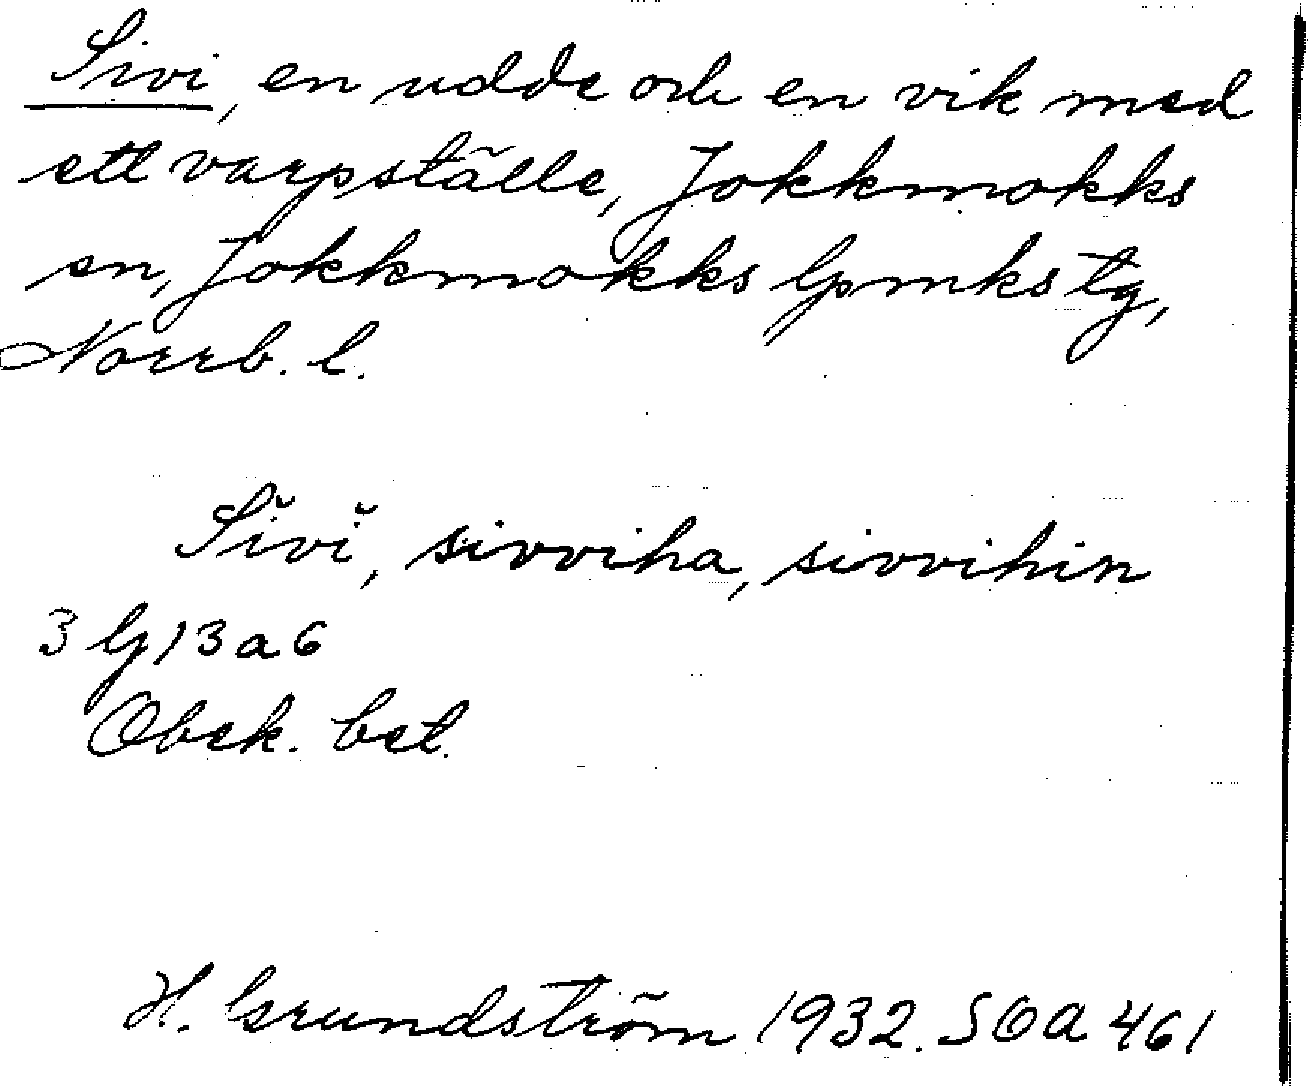 Sivi, en udde och en vik med
ett varpställe, Jokkmokks
sn, Jokkmokks lpmks tg,
Norrb. l.
Sĭvĭ, sivviha, sivvihin
3 lg 13 a 6
Obek. bet.
H. Grundström 1932. SOA 461